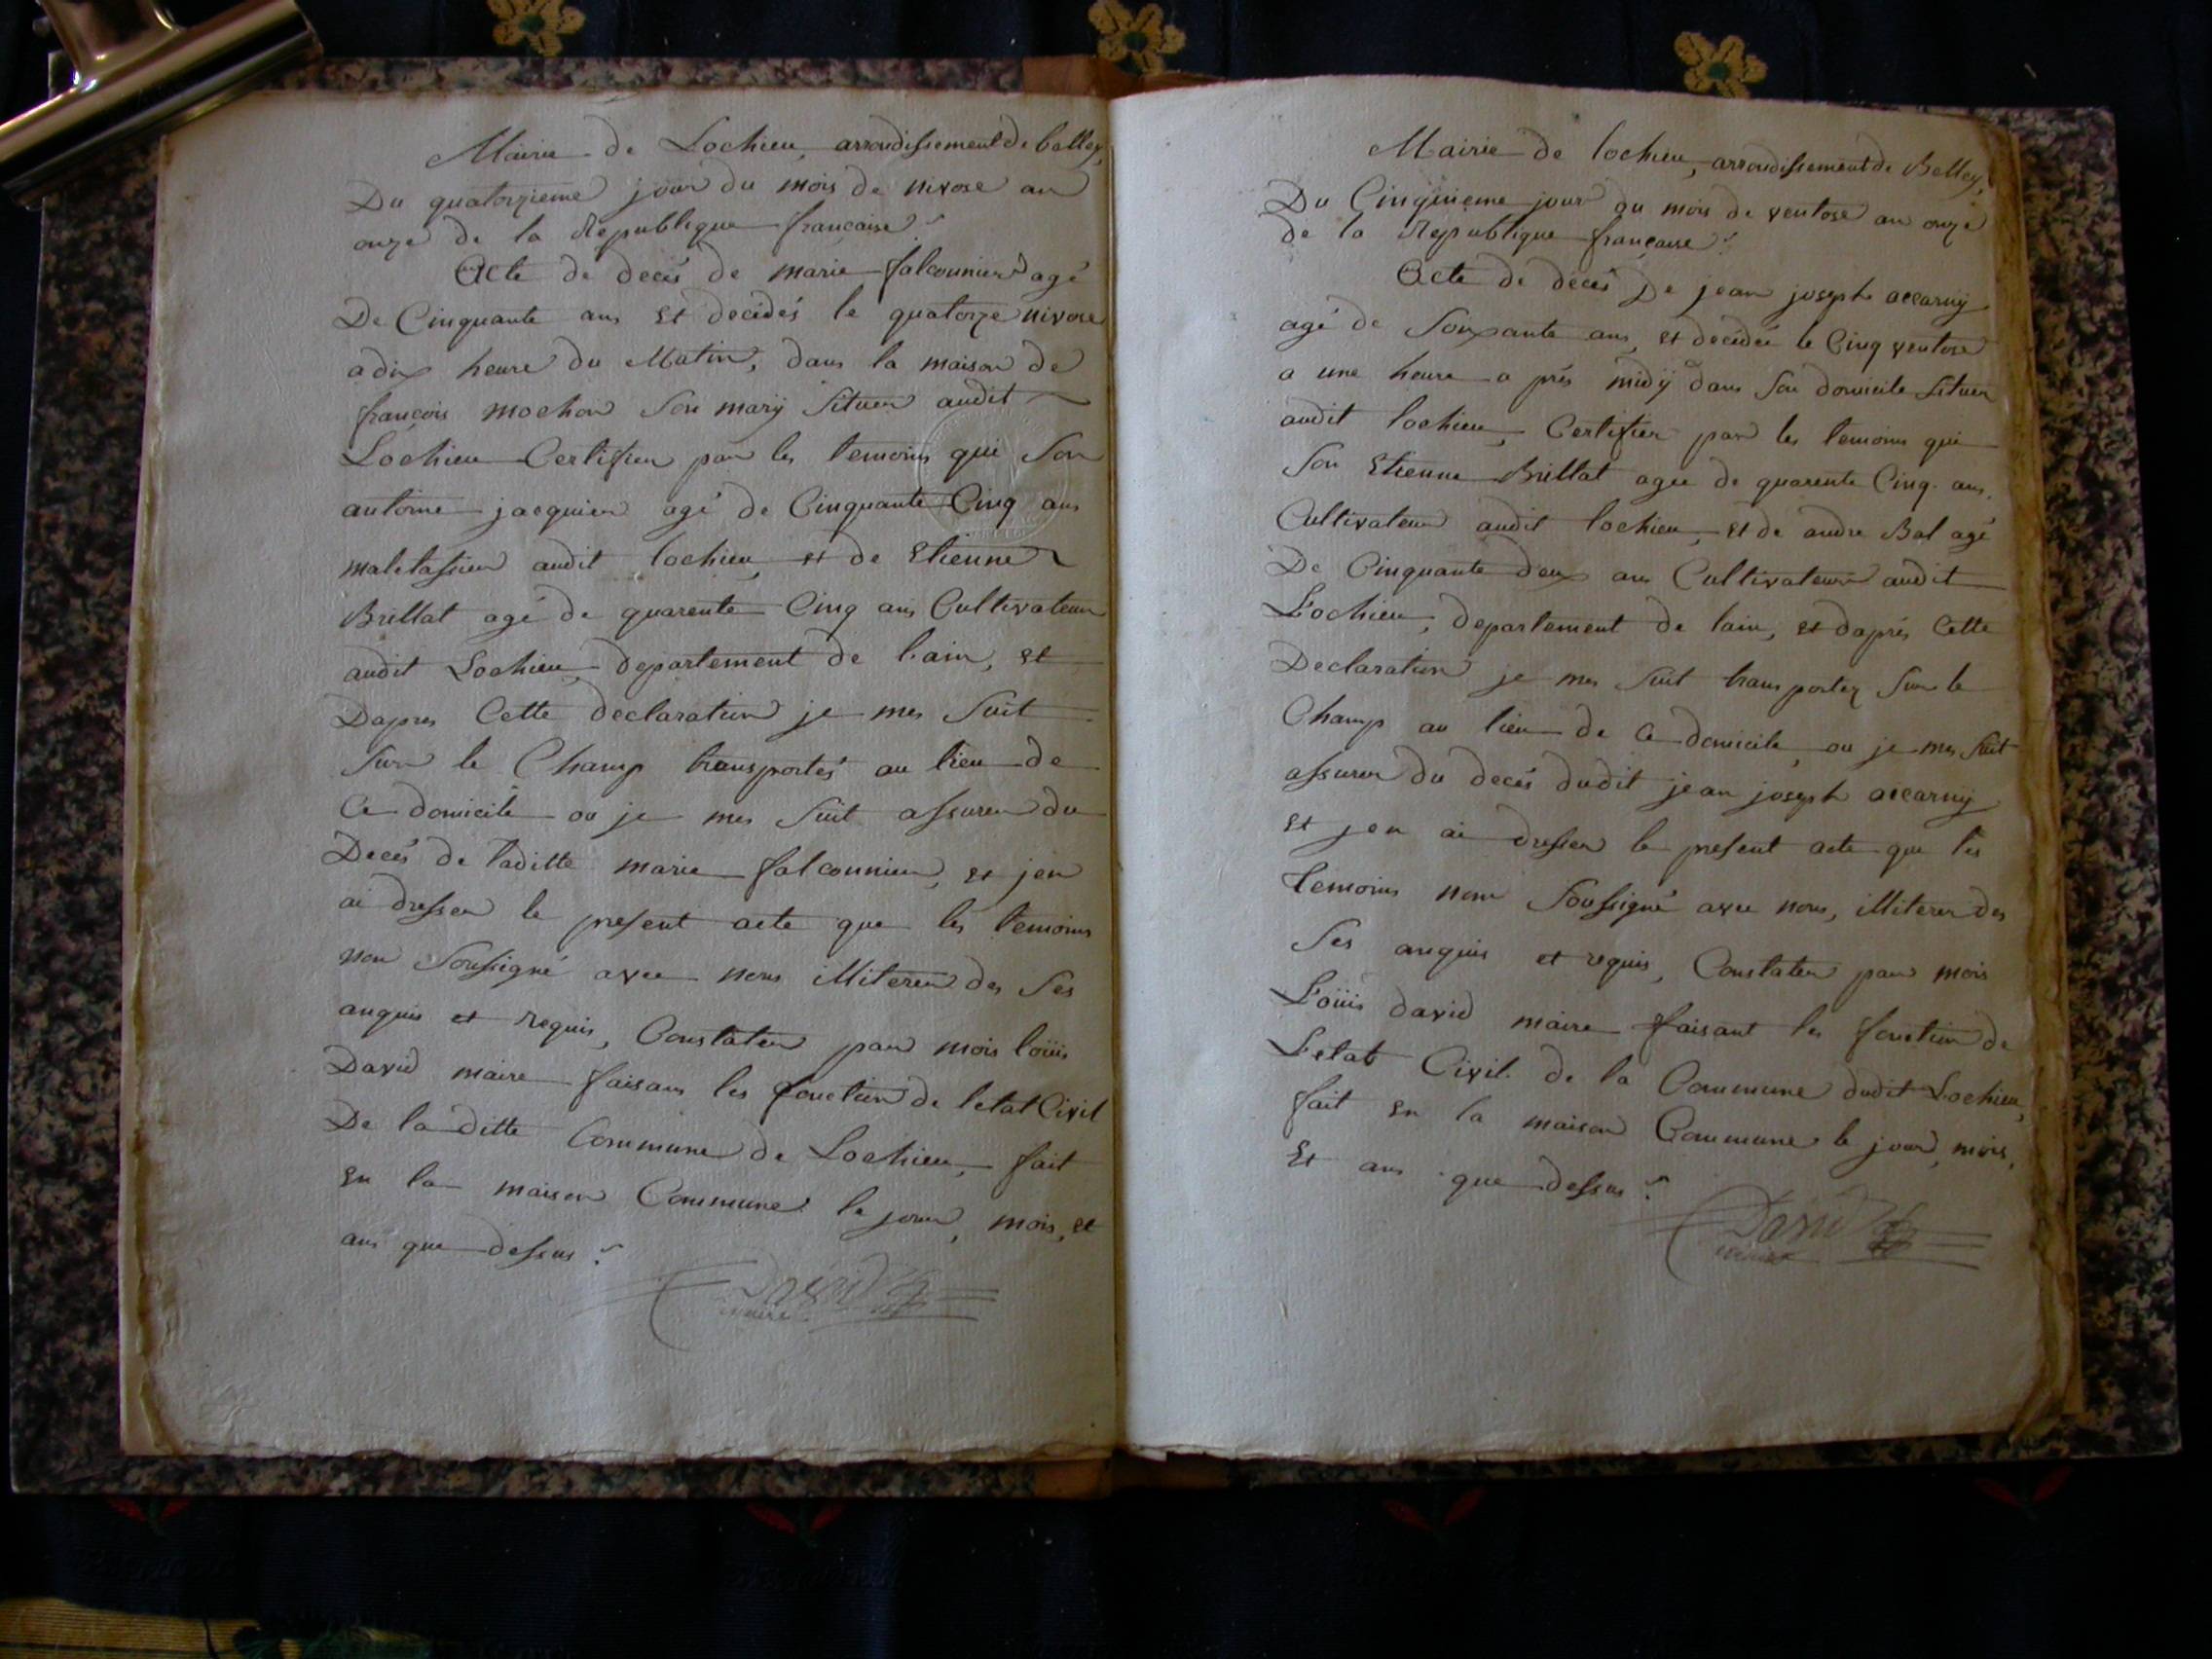 Mairie de Lochieu, arrondissement de belley,
Du quatorzieme jour du mois de nivose an
onze de la Republique française.
Acte de decés de marie falconnier agé
De Cinquante ans et decédés le quatorze nivose
a dix heure du Matin, dans la maison de
françois mochon Son marÿ Situer audit
Lochieu Certifier par les temoins qui Son
antoine jacquier agé de Cinquante Cinq ans
audit lochieu, et de Etienne
Brillat agé de quarente Cinq ans Cultivateur
audit Lochieu, departement de lain, et
Dapres Cette declaration je mes Suit
Sur le Champ transportés au lieu de
Ce domicile ou je mes Suit assurer du
Decés de laditte marie falconnier, et jen
ai dresser le present acte que les temoins
non Soussigné avec nous illiterer des Ses
anquis et requis, Constater par mois loüis
David maire faisans les fonction de letat Civil
De la ditte Commune de Lochieu, fait
En la maison Commune le jour, mois, et
ans que dessus.
David
maire
Mairie de lochieu, arrondissement de Belley,
Du Cinquieme jour du mois de ventose an onze
de la Republique française.
Acte de decés De jean joseph accarnÿ
agé de Soixante ans, et decédée le Cinq ventose
a une heure a prés midÿ dans Son domicile Situer
audit lochieu, Certifier par les temoins qui
Son Etienne Brillat agée de quarente Cinq ans,
Cultivateur audit lochieu, et de andre Bal agé
De Cinquante deux ans Cultivateur audit
Lochieu, departement de lain, et daprés Cette
Declaration je mes Suit transportez Sur le
Champ au lieu de Ce domicile, ou je mes Suit
assurer du decés dudit jean joseph accarnÿ
et jen ai dresser le present acte que les
temoins non Soussigné avec nous, illiterer des
Ses anquis et requis, Constater par mois
Loüis david maire faisant les fonction de
Letat Civil de la Commune dudit Lochieu,
fait En la maison Commune le jour, mois,
Et ans que dessus.
David
maire